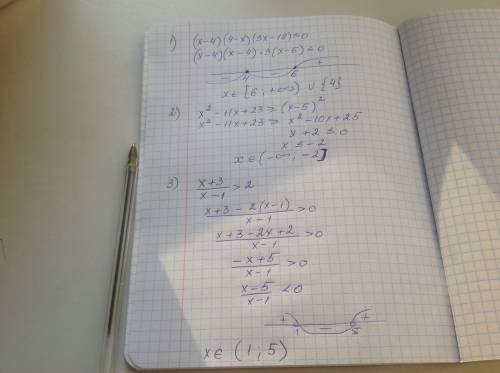 1) (x-4)(4-x)(3x-18)≤0
(x-4)(x-4)·3(x-6)≥0
- 4 - 6 +
x∈[6;+∞) ∪ {4}
2) x²-11x+23≥(x-5)²
x²-11x+23≥x²-10x+25
x+2≤0
x≤-2
x∈(-∞;-2]
3) x+3/x-1>2
x+3-2(x-1)/x-1>0
x+3-2x+2/x-1>0
-x+5/x-1>0
x-5/x-1<0
+ 1 - 5 +
x∈(1;5)